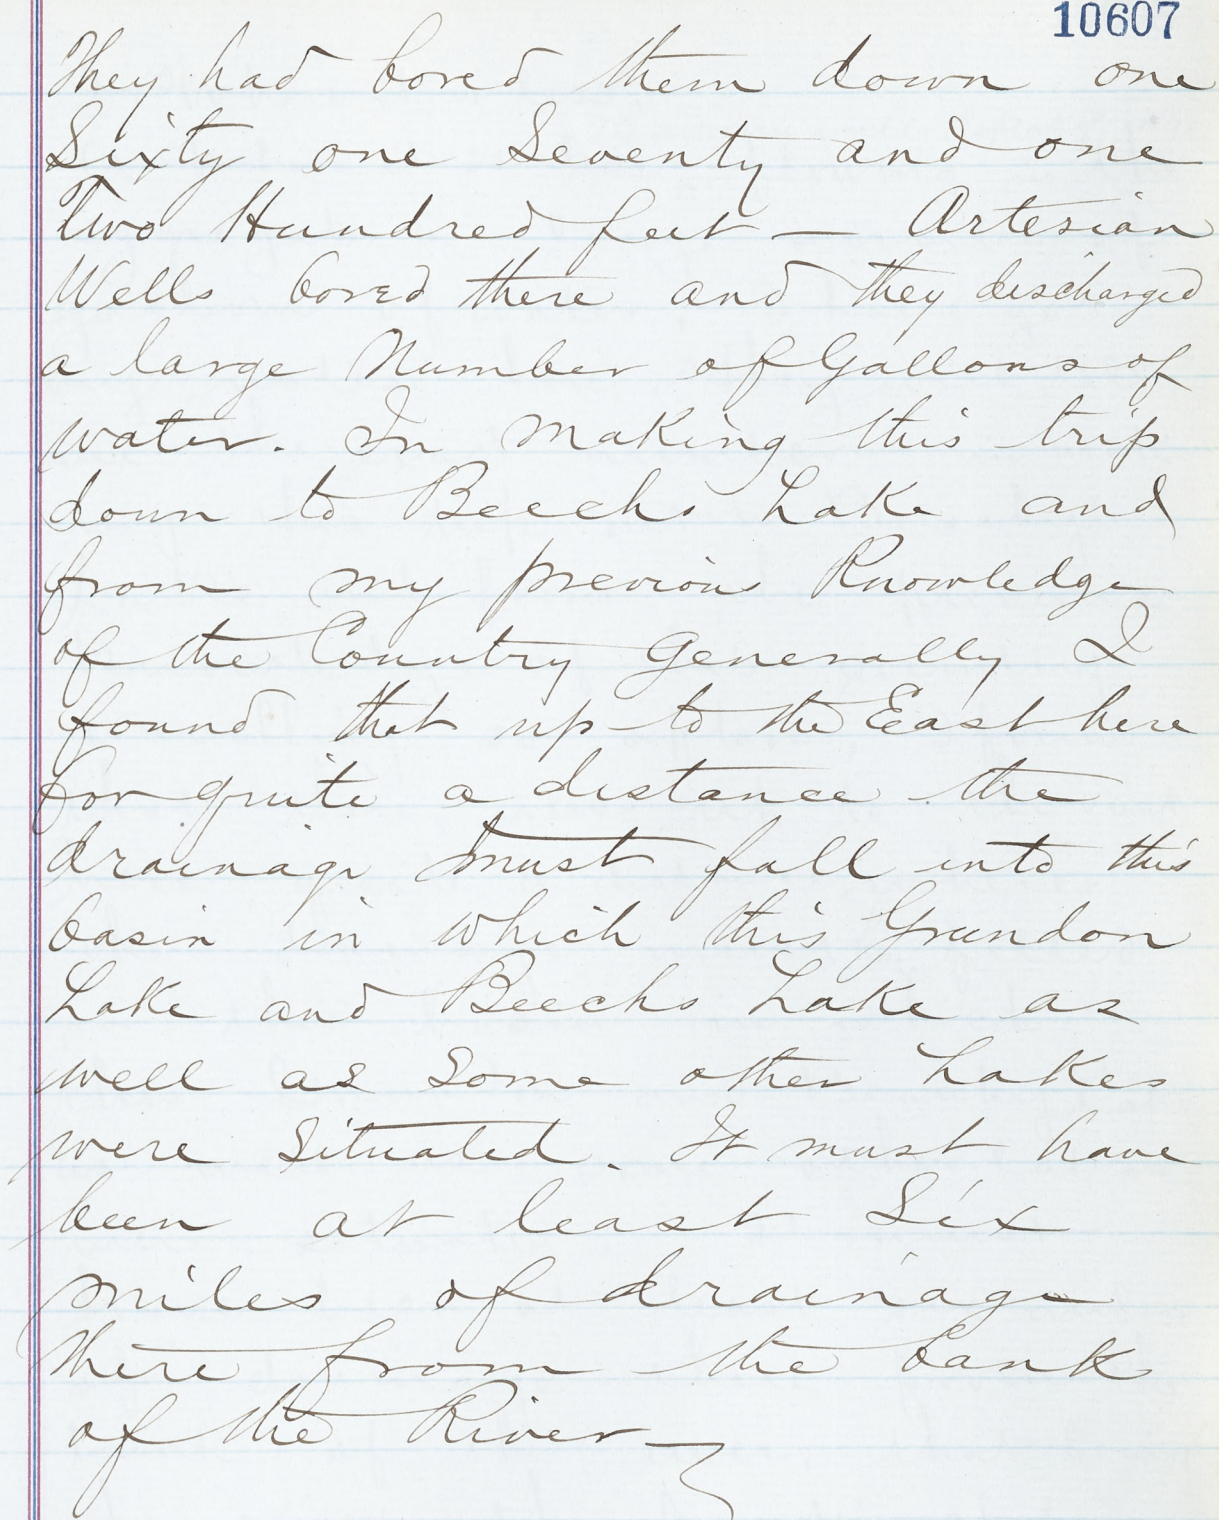 10607
They had bored them down one
Sixty one Seventy and one
Two Hundred feet — Artesian
Wells bored there and they discharged
a large Number of Gallons of
water. In making this trip
down to Beechs Lake and
from my previous Knowledge
of the Country Generally I
found that up to the East here
for quite a distance the
drainage must fall into this
basin in which this Grundon
Lake and Beechs Lake as
well as Some other Lakes
were Situated. It must have
been at least Six
miles of drainage
there from the bank
of the River —